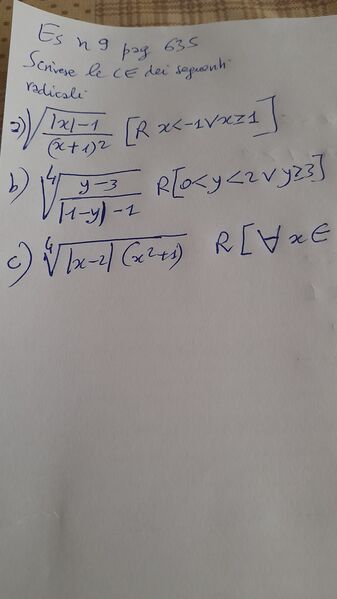 Es n 9 pag 635
Scrivere le CE dei seguenti
radicali
a) √(|x|-1/(x+1)²) [R x<-1∨x≥1]
b) ⁴√(y-3/|1-y|-1) R[0<y<2∨y≥3]
c) ⁴√(|x-2|(x²+1)) R[∀x∈